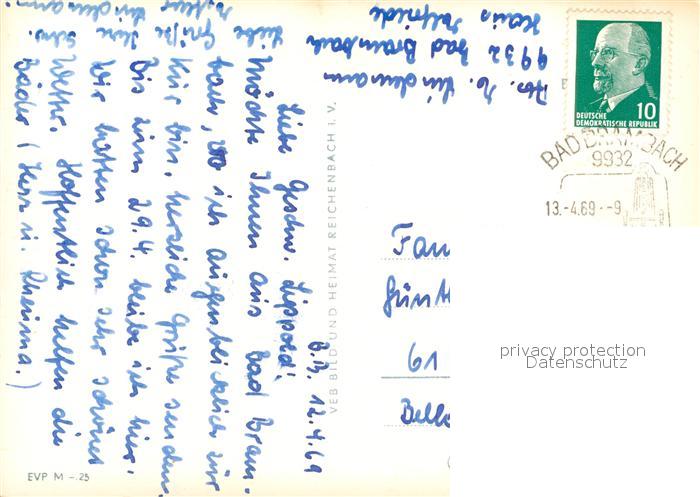 Abs. H. Lindemann
9932 Bad Brambach
Haus
B.B. 12.4.69
Liebe Geschw. Lippold!
Möchte Ihnen aus Bad Bram-
bach, wo ich augenblicklich zur
Kur bin, herzliche Grüße senden.
Bis zum 29.4. bleibe ich hier.
Wir hatten schon sehr schönes
Wetter. Hoffentlich helfen die
Bäder (Herz u. Rheuma.)
Liebe Grüße Ihre Schw.
Lindemann
VEB BILD UND HEIMAT REICHENBACH I. V.
EVP M -.25
10
DEUTSCHE
DEMOKRATISCHE REPUBLIK
BAD BRAMBACH
9932
13.-4.69.--9
Fam
Günt
61
Bell
privacy protection
Datenschutz